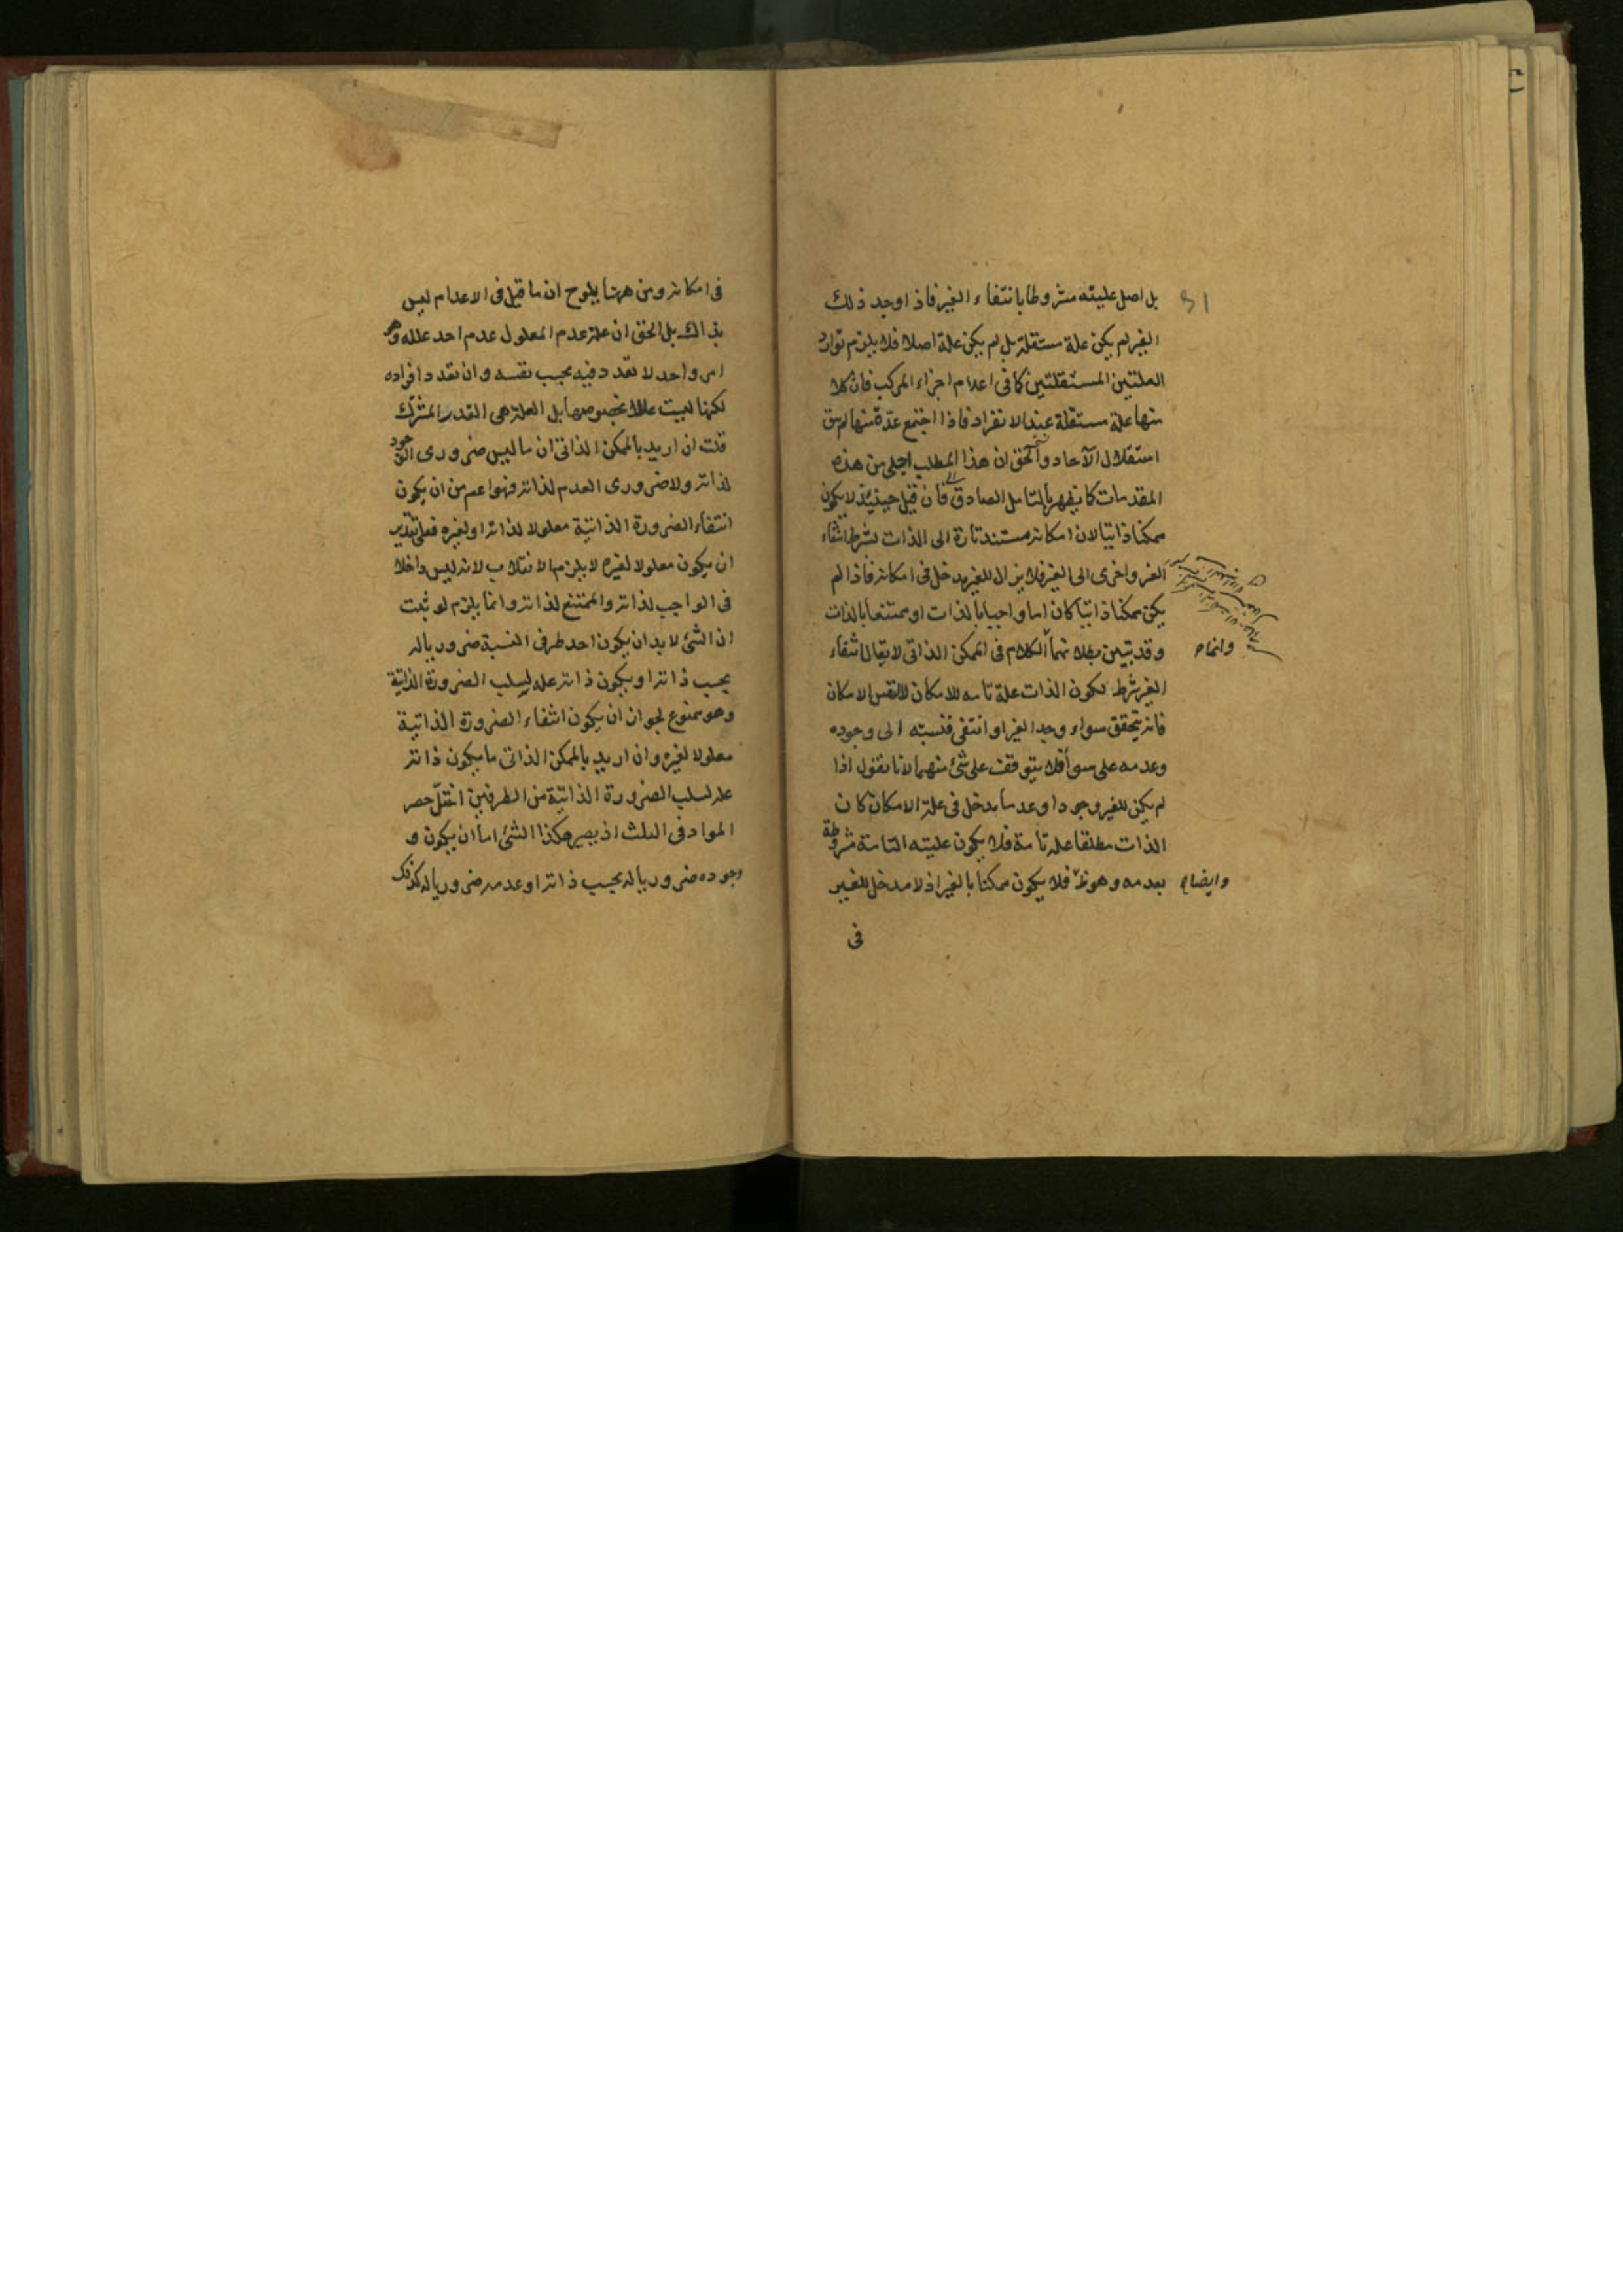 بل اصل عليته مشروطا بانتفاء الغير فاذا وجد ذلك
الغير لم يكن علة مستقلة بل لم يكن علة اصلا فلا يلزم توارد
العلتين المستقلتين كما فى اعدام اجزاء المركب فان كلا
منها علة مستقلة عند الانفراد فاذا اجتمع عدّة منها لم يبق
استقلال الآحاد والحق ان هذا المطلب اجلى من هذه
المقدمات كما يظهر بالتامل الصادق فان قيل حينئذ لا يكون
ممكنا ذاتيا لان امكانه مستند تارة الى الذات بشرط انتفاء
الغير واخرى الى الغير فلا يزال للغير مدخل فى امكانه فاذا لم
يكن ممكنا ذاتيا كان اما واجبا بالذات او ممتنعا بالذات
وقد تبين بطلانهما الكلام فى الممكن الذاتى لا يقال انتفاء
وانما
الغير شرط لكون الذات علة تامه للامكان لا لنفس الامكان
فانه يتحقق سواء وجد الغير او انتفى فنسبته الى وجوده
وعدمه على سواء فلا يتوقف على شئ منهما لانا نقول اذا
لم يكن للغير وجودا وعدما مدخل فى علة الامكان كان
الذات مطلقا علة تامة فلا يكون عليته التامة مشروطة
بعدمه وهو فلا يكون ممكنا بالغير اذ لا مدخل للغير
وايضا
فى
فى امكانه ومن ههنا يلوح ان ما قيل فى الاعدام ليس
بذاك بل الحق ان علة عدم المعلول عدم احد علله وهو
امر واحد لا تعدد فيه بحسب نفسه وان تعدد افراده
لكنها ليست عللا بخصوصها بل العلة هى القدر المشترك
قلت ان اريد بالممكن الذاتى ان ما ليس ضرورى الوجود
لذاته ولا ضرورى العدم لذاته فهو اعم من ان يكون
انتفاء الضرورة الذاتية معلولا لذاته او لغيره فعلى تقدير
ان يكون معلولا لغيره لا يلزم الانقلاب لانه ليس داخلا
فى الواجب لذاته والممتنع لذاته وانما يلزم لو ثبت
ان الشئ لا بد ان يكون احد طرفى النسبة ضروريا له
بحسب ذاته او يكون ذاته علة لسلب الضرورة الذاتية
وهو ممنوع لجواز ان يكون انتفاء الضرورة الذاتية
معلولا لغيره وان اريد بالممكن الذاتى ما يكون ذاته
علة لسلب الضرورة الذاتية من الطرفين اختل حصر
المواد فى الثلث اذ يصير هكذا الشئ اما ان يكون و
وجوده ضروريا له بحسب ذاته او عدمه ضروريا له كذلك